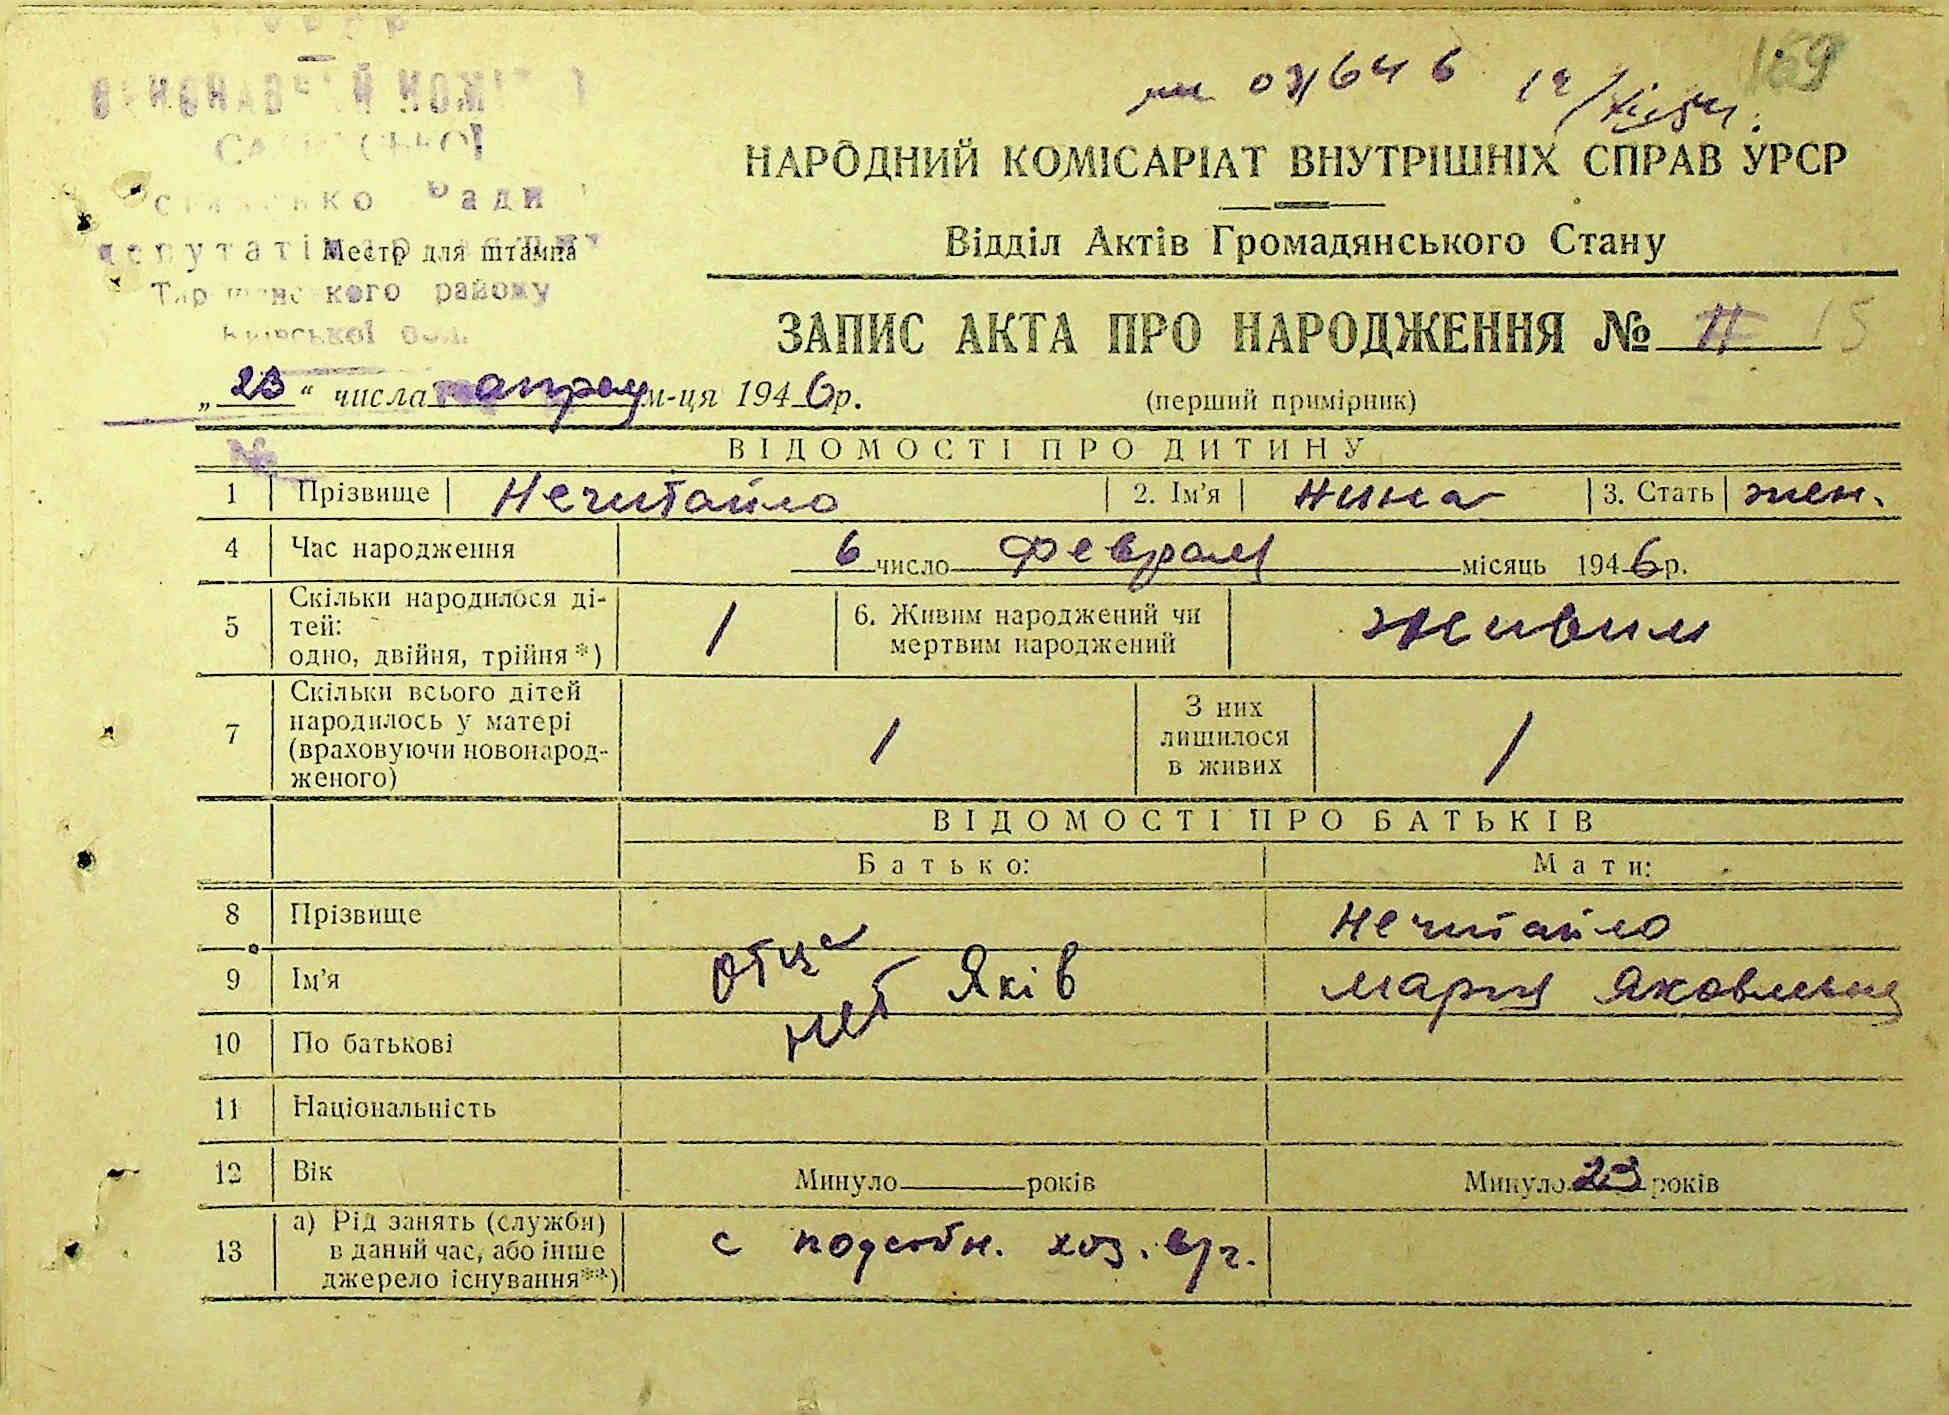 159
031646
НАРОДНИЙ КОМІСАРІАТ ВНУТРІШНІХ СПРАВ УРСР
Відділ Актів Громадянського Стану
Ради
депутатів
Место для штампа
району
Київської обл.
ЗАПИС АКТА ПРО НАРОДЖЕННЯ № 11 15
„23“ числа апреля м-ця 1946 р.
(перший примірник)
№
ВІДОМОСТІ ПРО ДИТИНУ
1 Прізвище Нечитайло 2. Ім'я Нина 3. Стать жен.
4 Час народження 6 число февраля місяць 1946 р.
5 Скільки народилося ді-
тей:
одно, двійня, трійня*) 1
6. Живим народжений чи
мертвим народжений живим
7 Скільки всього дітей
народилось у матері
(враховуючи новонарод-
женого) 1
З них
лишилося
в живих 1
ВІДОМОСТІ ПРО БАТЬКІВ
Батько: Мати:
8 Прізвище Нечитайло
отца
9 Ім'я Яків Мария Яковлевна
нет
10 По батькові
11 Національність
12 Вік Минуло років Минуло 23 років
13 а) Рід занять (служби)
в даний час, або інше
джерело існування**)
с подсобн. хоз. в/ч.